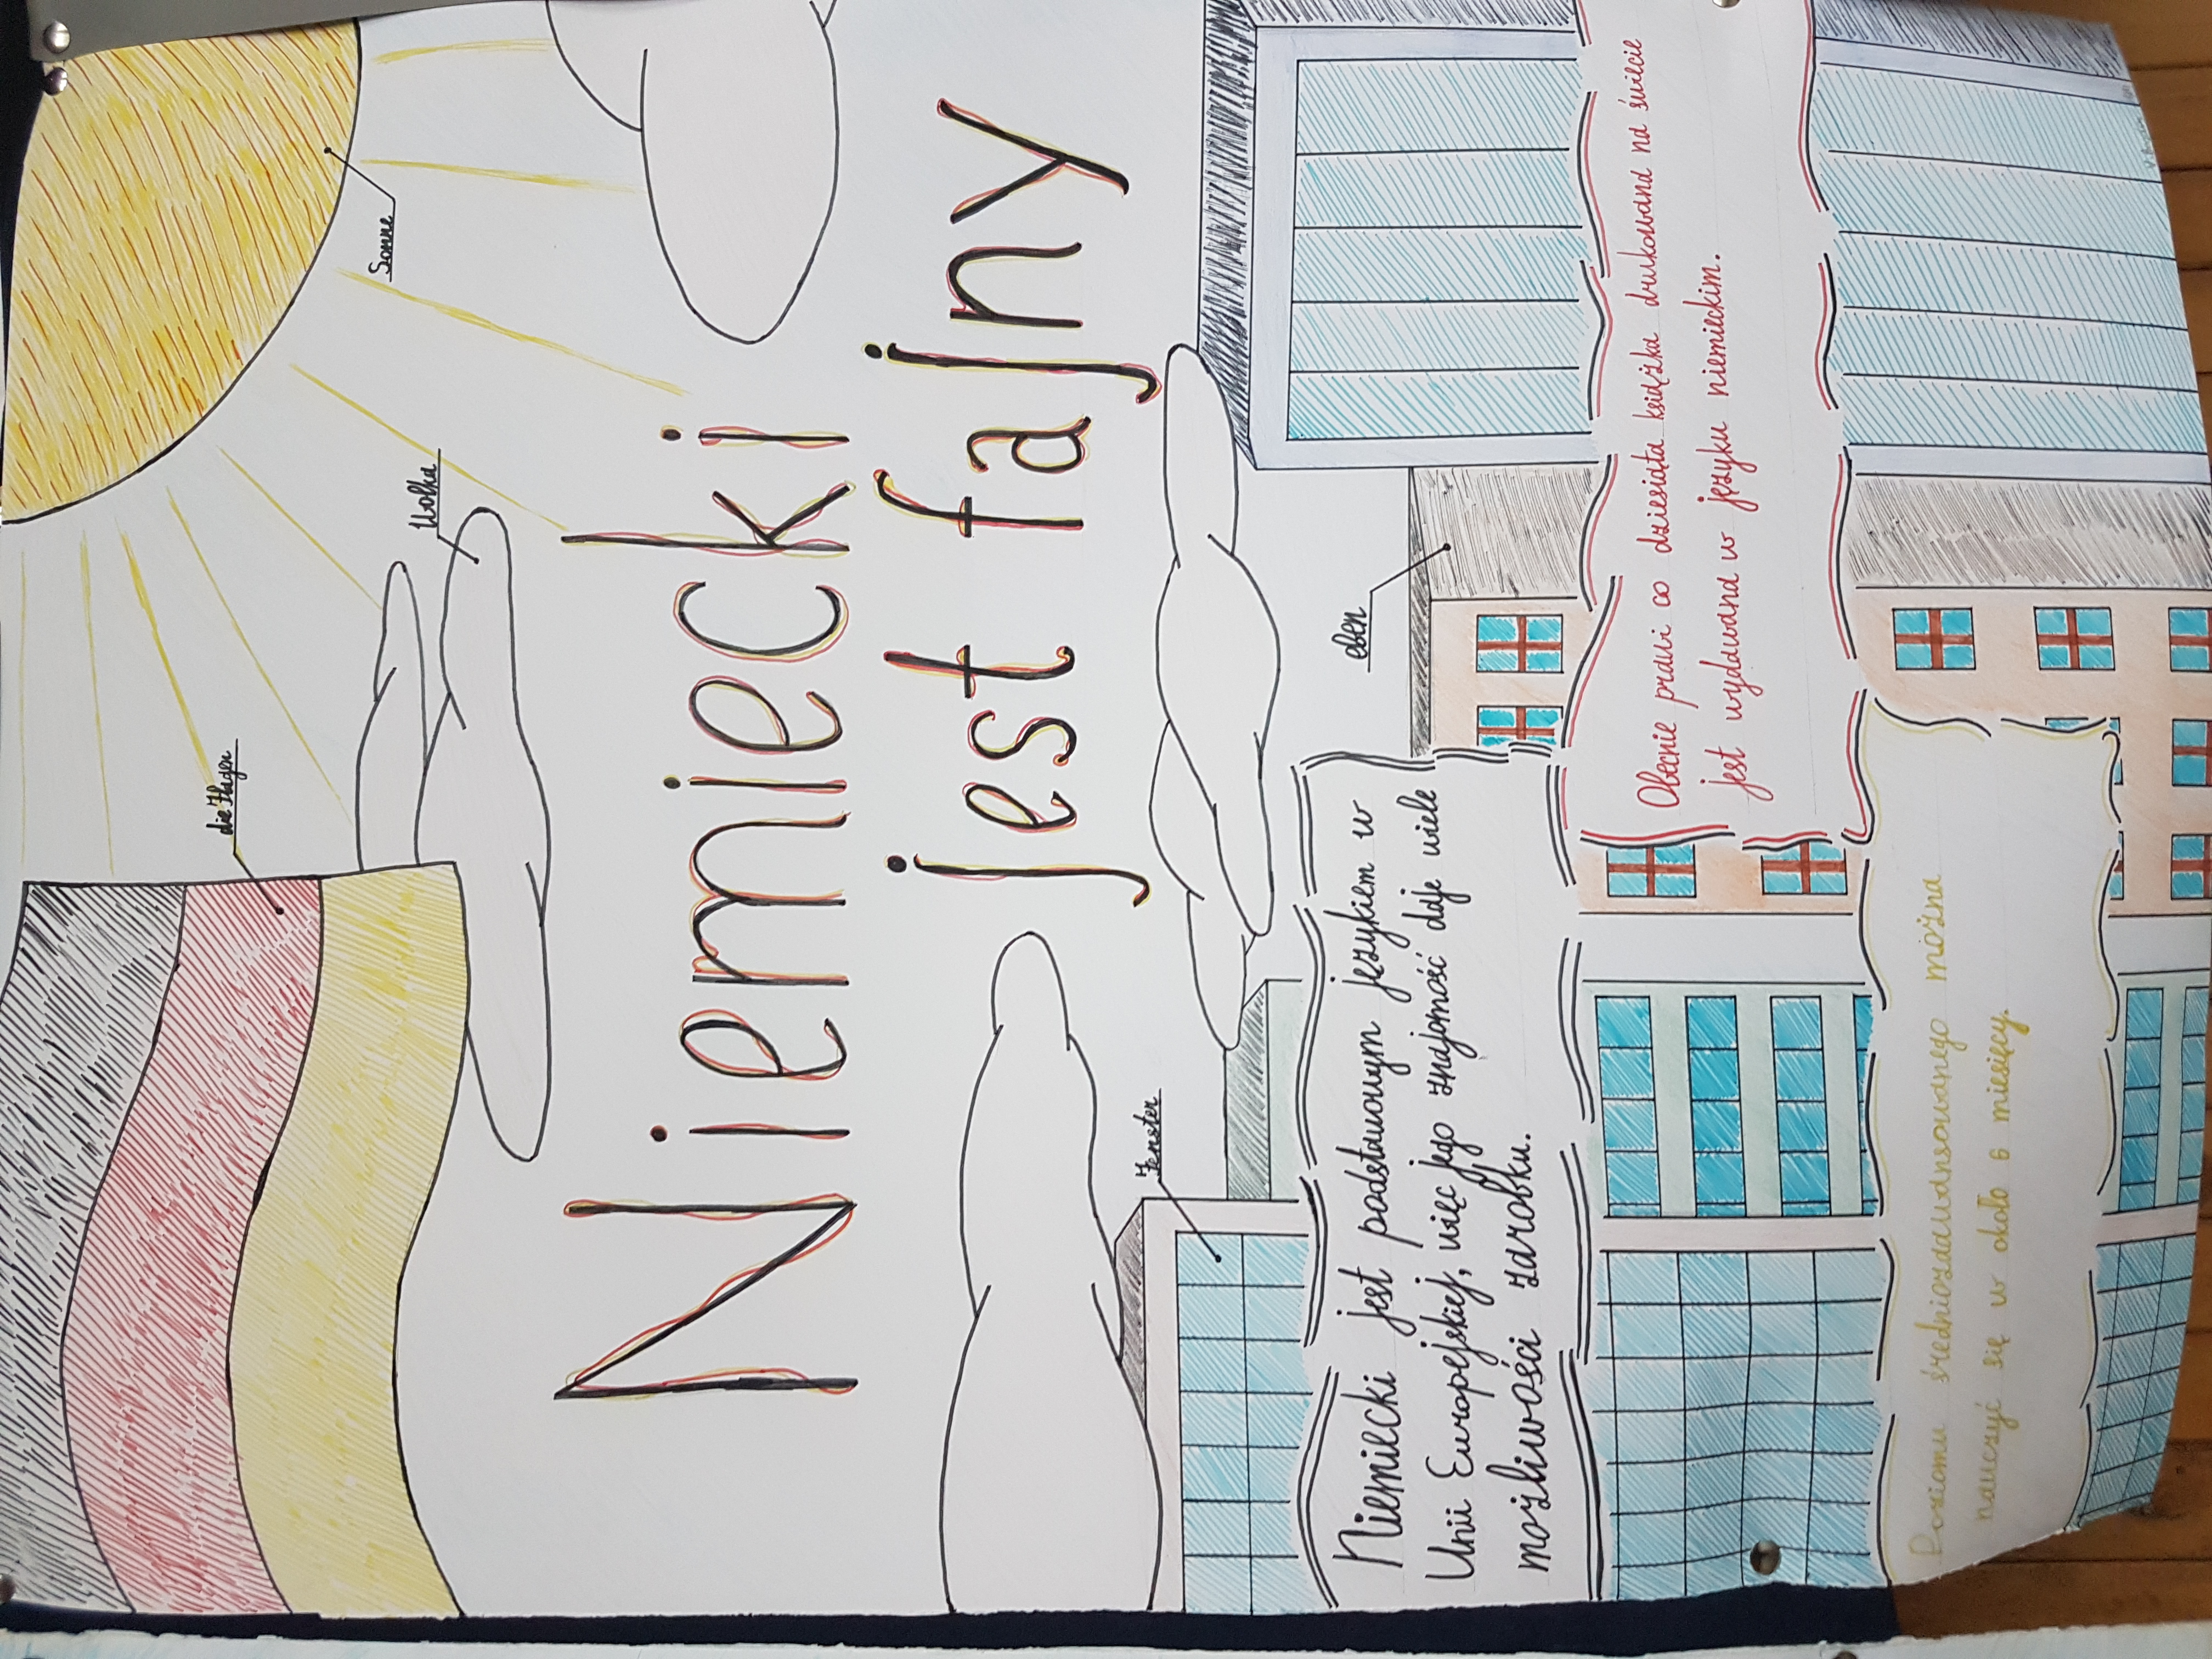 die Flagen
Wolke
Sonne
Niemiecki
jest fajny
Fenster
eben
Niemiecki jest podstawowym językiem w
Unii Europejskiej, więc jego znajomość daje wiele
możliwości zarobku.
Obecnie prawi co dziesiąta książka drukowana na świecie
jest wydawana w języku niemieckim.
Poziomu średniozaawansowanego można
nauczyć się w około 6 miesięcy.